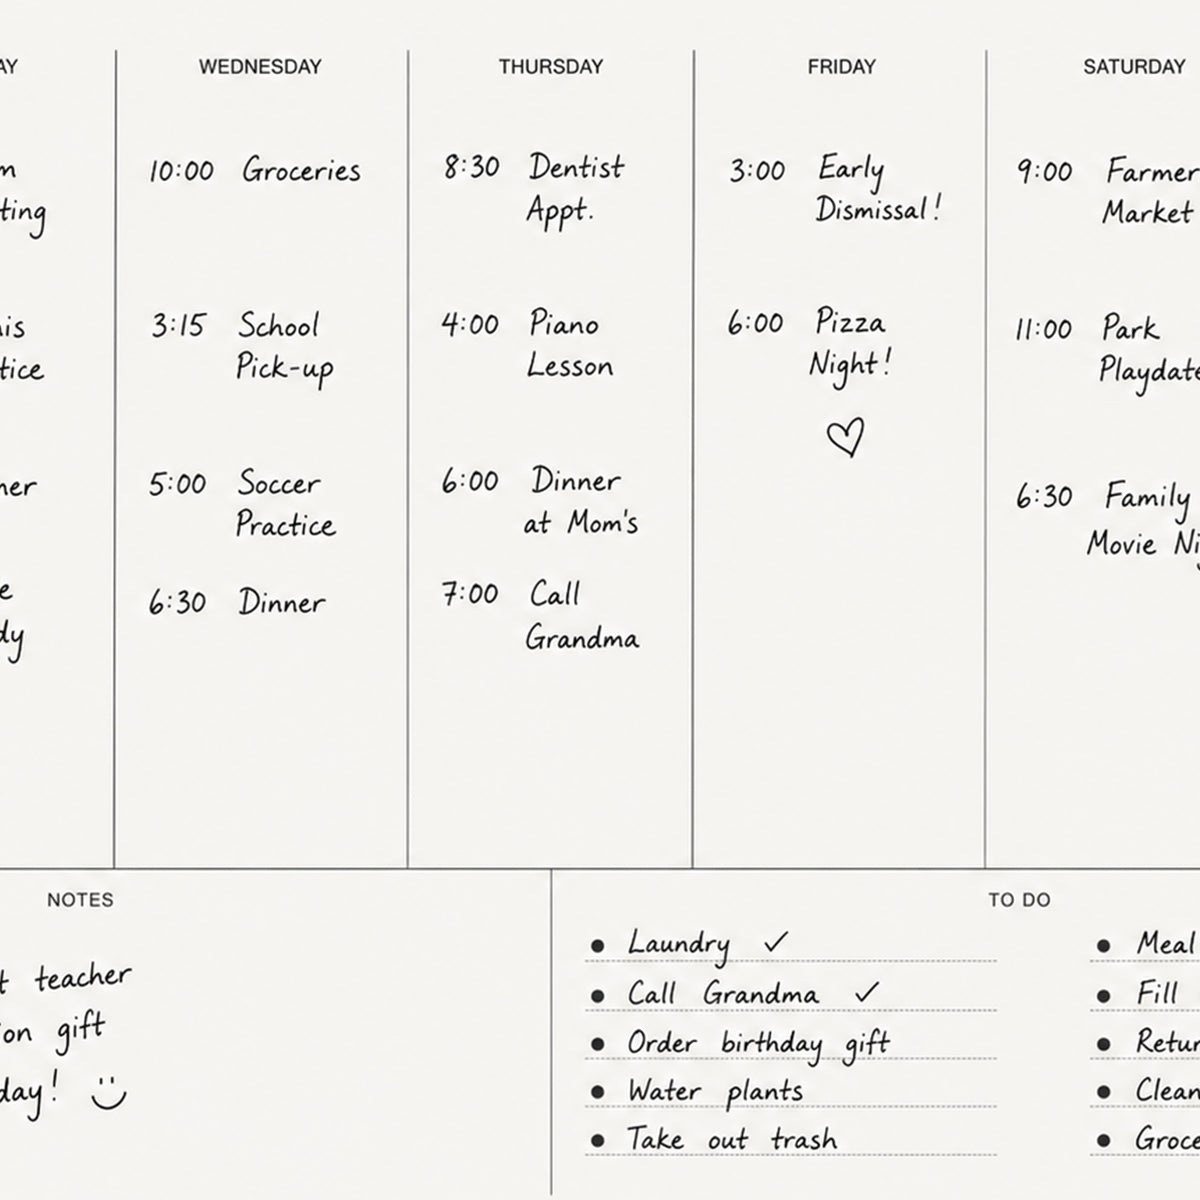 WEDNESDAY
10:00 Groceries
3:15 School
Pick-up
5:00 Soccer
Practice
6:30 Dinner
THURSDAY
8:30 Dentist
Appt.
4:00 Piano
Lesson
6:00 Dinner
at Mom's
7:00 Call
Grandma
FRIDAY
3:00 Early
Dismissal!
6:00 Pizza
Night!
SATURDAY
9:00 Farmer
Market
11:00 Park
Playdate
6:30 Family
Movie
NOTES
teacher
gift
TO DO
Laundry ✓
Call Grandma ✓
Order birthday gift
Water plants
Take out trash
Meal
Fill
Clean